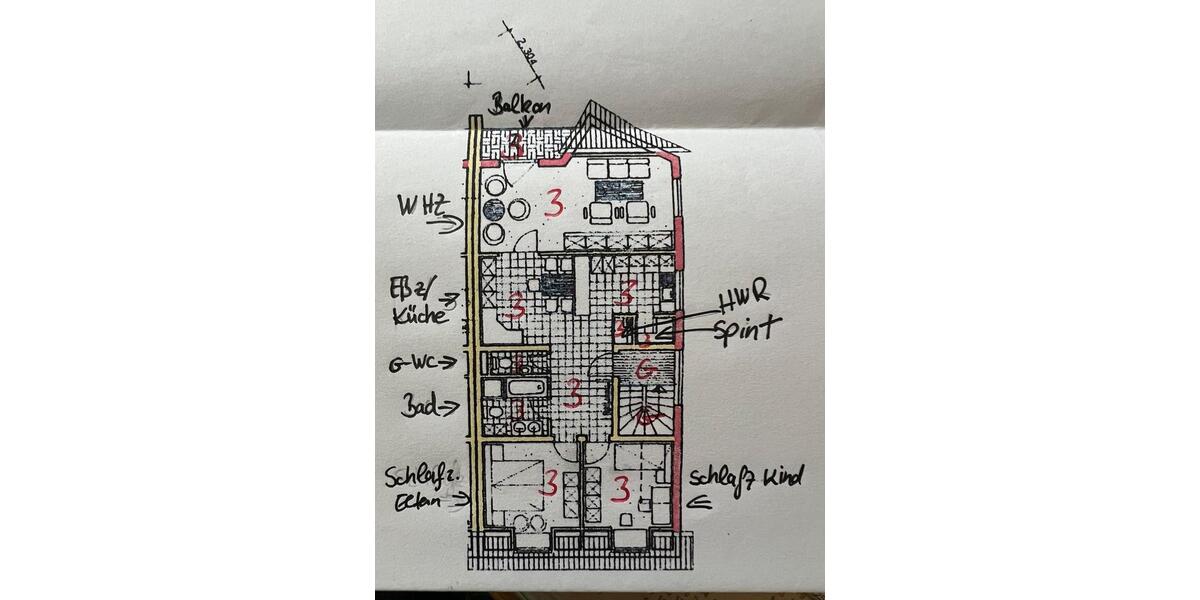 2.304
Balkon
3
WHZ
3
Eßz/
Küche
3
3
HWR
3
Spint
3
G-WC
G
Bad
3
Schlafz.
Eltern
3
3
Schlafz Kind